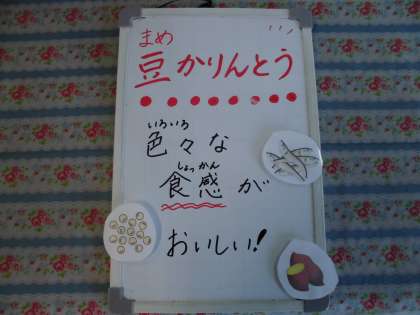 まめ
豆かりんとう
いろいろ
色々な
しょっかん
食感が
おいしい!